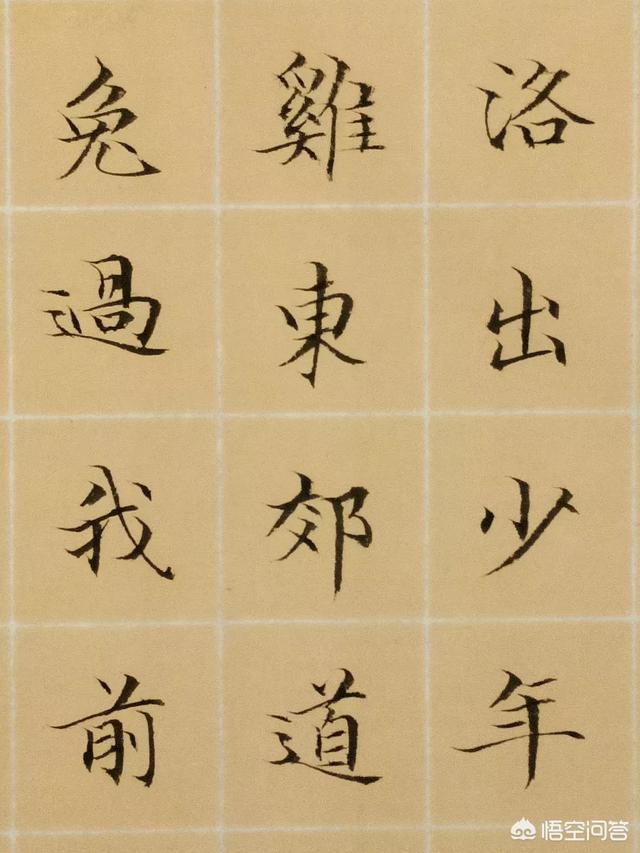 洛出少年
雞東郊道
兔過我前
悟空问答